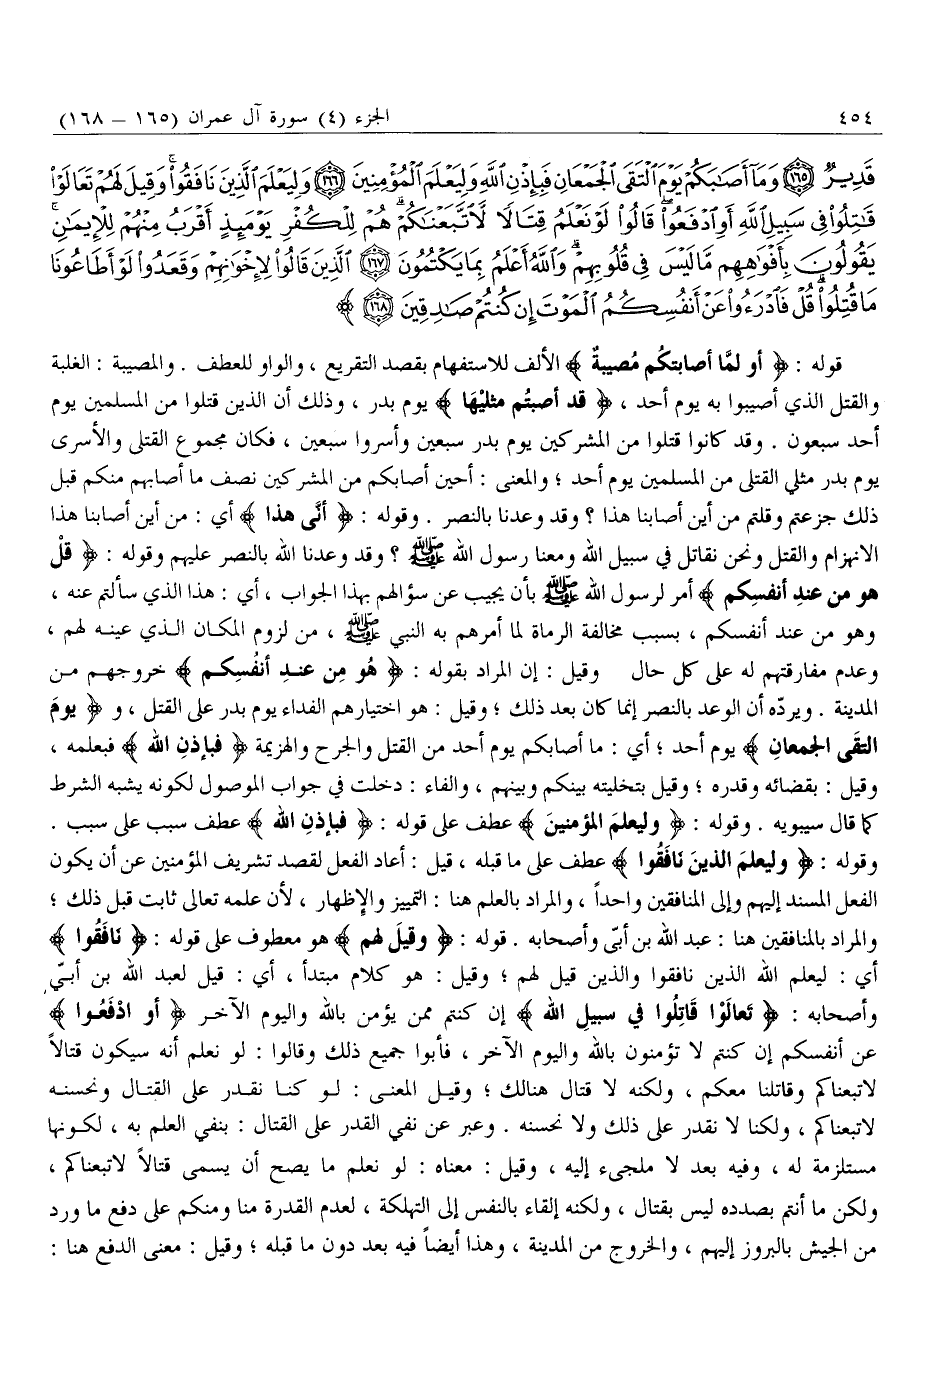 ٤٥٤ الجزء (٤) سورة آل عمران (١٦٥ – ١٦٨)
قَدِيرٌ ﴿١٦٥﴾ وَمَآ أَصَٰبَكُمْ يَوْمَ ٱلْتَقَى ٱلْجَمْعَانِ فَبِإِذْنِ ٱللَّهِ وَلِيَعْلَمَ ٱلْمُؤْمِنِينَ ﴿١٦٦﴾ وَلِيَعْلَمَ ٱلَّذِينَ نَافَقُوا۟ ۚ وَقِيلَ لَهُمْ تَعَالَوْا۟
قَٰتِلُوا۟ فِى سَبِيلِ ٱللَّهِ أَوِ ٱدْفَعُوا۟ ۖ قَالُوا۟ لَوْ نَعْلَمُ قِتَالًا لَّٱتَّبَعْنَٰكُمْ ۗ هُمْ لِلْكُفْرِ يَوْمَئِذٍ أَقْرَبُ مِنْهُمْ لِلْإِيمَٰنِ ۚ
يَقُولُونَ بِأَفْوَٰهِهِم مَّا لَيْسَ فِى قُلُوبِهِمْ ۗ وَٱللَّهُ أَعْلَمُ بِمَا يَكْتُمُونَ ﴿١٦٧﴾ ٱلَّذِينَ قَالُوا۟ لِإِخْوَٰنِهِمْ وَقَعَدُوا۟ لَوْ أَطَاعُونَا
مَا قُتِلُوا۟ ۗ قُلْ فَٱدْرَءُوا۟ عَنْ أَنفُسِكُمُ ٱلْمَوْتَ إِن كُنتُمْ صَٰدِقِينَ ﴿١٦٨﴾ ﴾
قوله : ﴿ أو لمَّا أصابتكُم مُصيبةٌ ﴾ الألف للاستفهام بقصد التقريع ، والواو للعطف . والمصيبة : الغلبة
والقتل الذي أصيبوا به يوم أحد ، ﴿ قد أصبتُم مثليْهَا ﴾ يوم بدر ، وذلك أن الذين قتلوا من المسلمين يوم
أحد سبعون . وقد كانوا قتلوا من المشركين يوم بدر سبعين وأسروا سبعين ، فكان مجموع القتلى والأسرى
يوم بدر مثلي القتلى من المسلمين يوم أحد ؛ والمعنى : أحين أصابكم من المشركين نصف ما أصابهم منكم قبل
ذلك جزعتم وقلتم من أين أصابنا هذا ؟ وقد وعدنا بالنصر . وقوله : ﴿ أنَّى هذا ﴾ أي : من أين أصابنا هذا
الانهزام والقتل ونحن نقاتل في سبيل الله ومعنا رسول الله ﷺ ؟ وقد وعدنا الله بالنصر عليهم وقوله : ﴿ قلْ
هو من عندِ أنفسِكم ﴾ أمر لرسول الله ﷺ بأن يجيب عن سؤالهم بهذا الجواب ، أي : هذا الذي سألتم عنه ،
وهو من عند أنفسكم ، بسبب مخالفة الرماة لما أمرهم به النبي ﷺ ، من لزوم المكان الذي عينه لهم ،
وعدم مفارقتهم له على كل حال وقيل : إن المراد بقوله : ﴿ هُو مِن عندِ أنفُسِكم ﴾ خروجهم من
المدينة . ويردّه أن الوعد بالنصر إنما كان بعد ذلك ؛ وقيل : هو اختيارهم الفداء يوم بدر على القتل ، و ﴿ يومَ
التقَى الجمعانِ ﴾ يوم أحد ؛ أي : ما أصابكم يوم أحد من القتل والجرح والهزيمة ﴿ فبإذنِ الله ﴾ فبعلمه ،
وقيل : بقضائه وقدره ؛ وقيل بتخليته بينكم وبينهم ، والفاء : دخلت في جواب الموصول لكونه يشبه الشرط
كما قال سيبويه . وقوله : ﴿ وليعلمَ المؤمنينَ ﴾ عطف على قوله : ﴿ فبإذنِ الله ﴾ عطف سبب على سبب .
وقوله : ﴿ وليعلمَ الذينَ نافقُوا ﴾ عطف على ما قبله ، قيل : أعاد الفعل لقصد تشريف المؤمنين عن أن يكون
الفعل المسند إليهم وإلى المنافقين واحداً ، والمراد بالعلم هنا : التمييز والإظهار ، لأن علمه تعالى ثابت قبل ذلك ؛
والمراد بالمنافقين هنا : عبد الله بن أبيّ وأصحابه . قوله : ﴿ وقيلَ لهم ﴾ هو معطوف على قوله : ﴿ نَافَقُوا ﴾
أي : ليعلم الله الذين نافقوا والذين قيل لهم ؛ وقيل : هو كلام مبتدأ ، أي : قيل لعبد الله بن أبيّ
وأصحابه : ﴿ تعالَوْا قَاتِلُوا في سبيلِ الله ﴾ إن كنتم ممن يؤمن بالله واليوم الآخر ﴿ أو ادْفَعُوا ﴾
عن أنفسكم إن كنتم لا تؤمنون بالله واليوم الآخر ، فأبوا جميع ذلك وقالوا : لو نعلم أنه سيكون قتالاً
لاتبعناكم وقاتلنا معكم ، ولكنه لا قتال هنالك ؛ وقيل المعنى : لو كنا نقدر على القتال ونحسنه
لاتبعناكم ، ولكنا لا نقدر على ذلك ولا نحسنه . وعبر عن نفي القدر على القتال : بنفي العلم به ، لكونها
مستلزمة له ، وفيه بعد لا ملجىء إليه ، وقيل : معناه : لو نعلم ما يصح أن يسمى قتالاً لاتبعناكم ،
ولكن ما أنتم بصدده ليس بقتال ، ولكنه إلقاء بالنفس إلى التهلكة ، لعدم القدرة منا ومنكم على دفع ما ورد
من الجيش بالبروز إليهم ، والخروج من المدينة ، وهذا أيضاً فيه بعد دون ما قبله ؛ وقيل : معنى الدفع هنا :